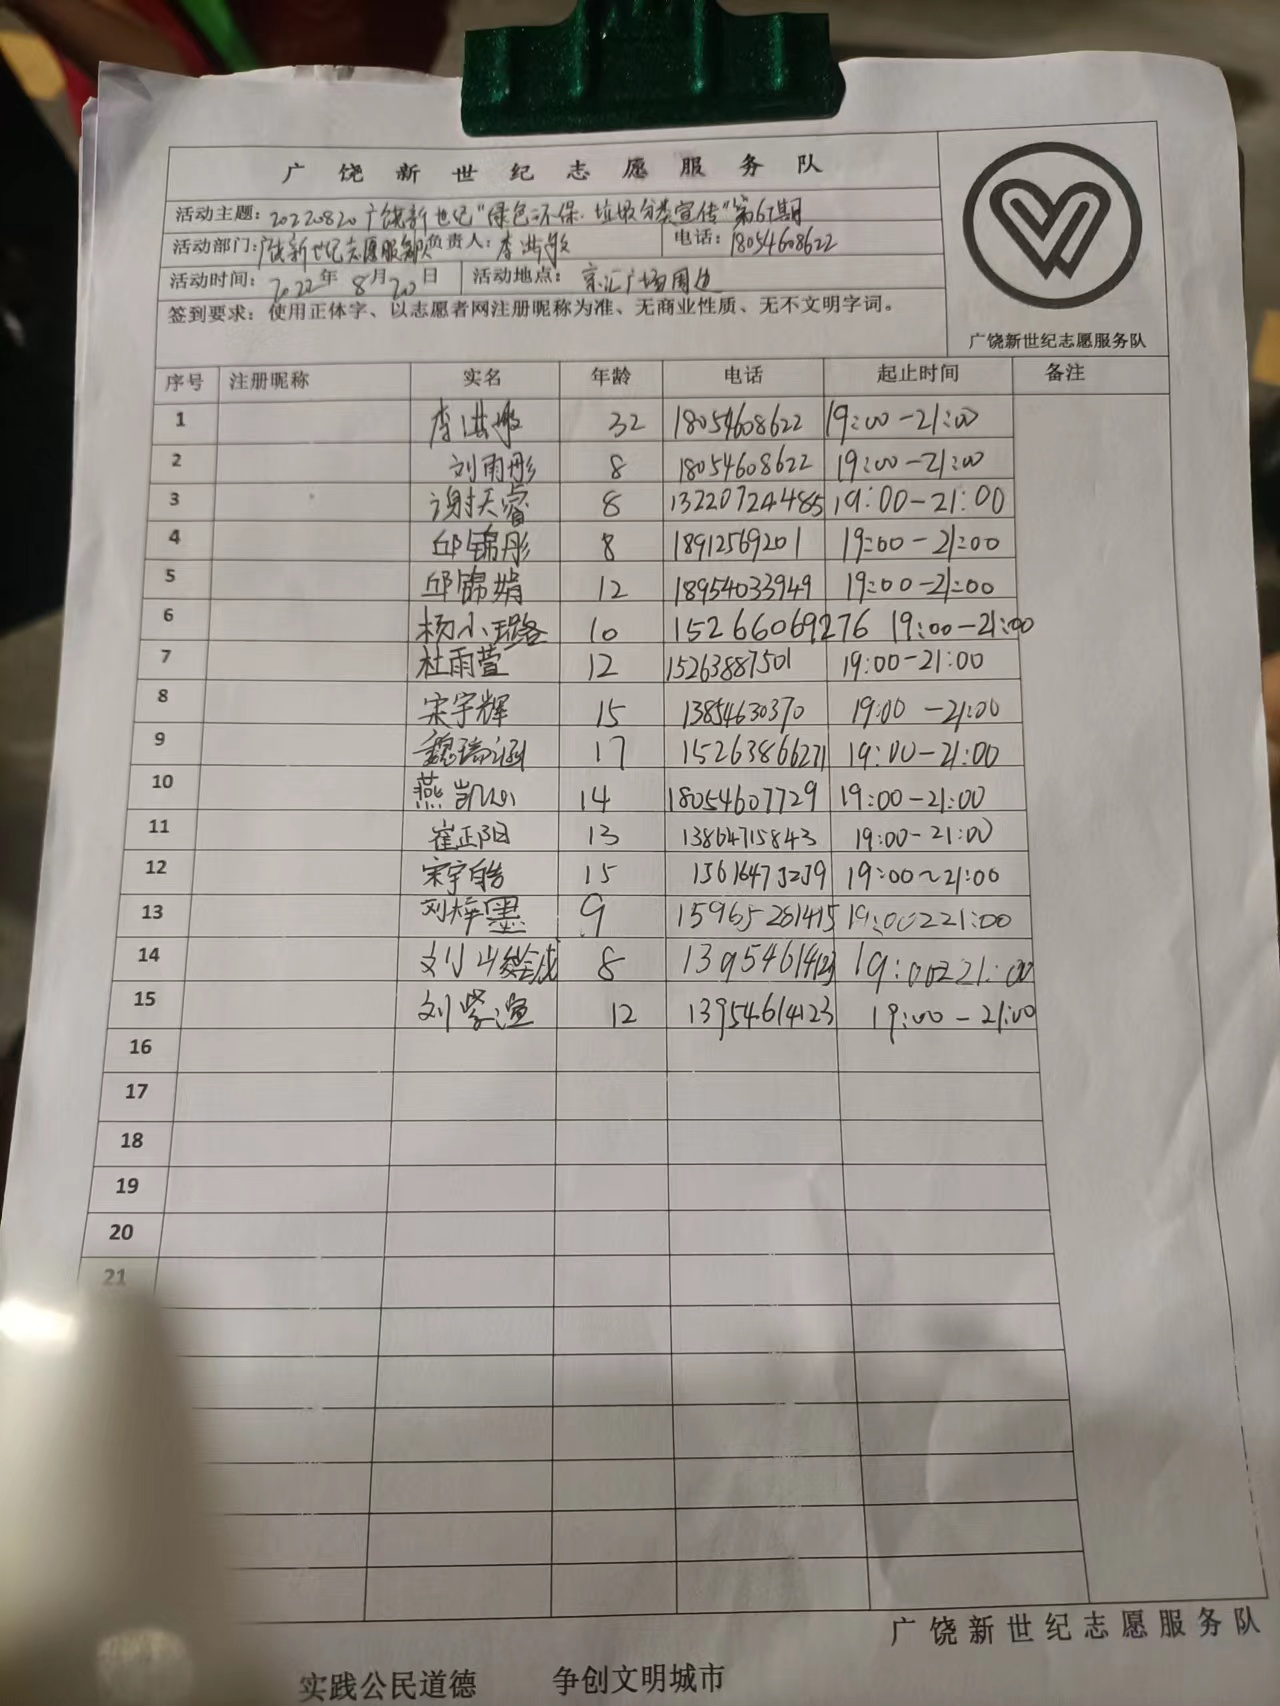 广饶新世纪志愿服务队
活动主题：20220820广饶新世纪"绿色环保.垃圾分类宣传"第67期
活动部门：广饶新世纪志愿服务队 负责人：李洪敏 电话：18054608622
活动时间：2022年8月20日 活动地点：京汇广场周边
签到要求：使用正体字、以志愿者网注册昵称为准、无商业性质、无不文明字词。
广饶新世纪志愿服务队
序号 注册昵称 实名 年龄 电话 起止时间 备注
1 李洪敏 32 18054608622 19:00-21:00
2 刘雨彤 8 18054608622 19:00-21:00
3 谢天睿 8 13220724485 19:00-21:00
4 邱锦彤 8 18912569201 19:00-21:00
5 邱锦娟 12 18954033949 19:00-21:00
6 杨小璐 10 15266069276 19:00-21:00
7 杜雨萱 12 15263887501 19:00-21:00
8 宋宇辉 15 13854630370 19:00-21:00
9 魏瑞涵 17 15263866271 19:00-21:00
10 燕凯 14 18054607729 19:00-21:00
11 崔正阳 13 13864715843 19:00-21:00
12 宋宇皓 15 19:00~21:00
13 刘梓墨 9 15965261415 19:00221:00
14 刘 8 13954614123 19:00221:00
15 刘紫渲 12 13954614123 19:00-21:00
16
17
18
19
20
21
广饶新世纪志愿服务队
实践公民道德 争创文明城市